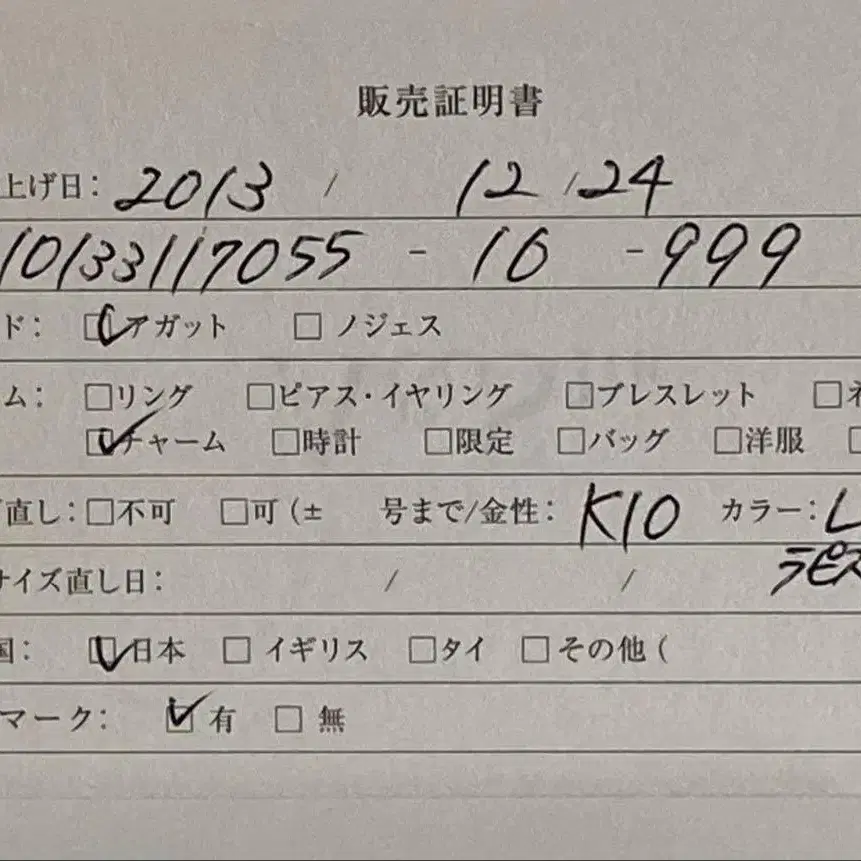 販売証明書
上げ日: 2013 / 12 / 24
10133117055 - 16 - 999
ド: ☑アガット □ノジェス
ム: □リング □ピアス・イヤリング □ブレスレット □ネ
☑チャーム □時計 □限定 □バッグ □洋服 □
直し: □不可 □可 (± 号まで/金性: K10 カラー: L
ラピス
サイズ直し日: / /
国: ☑日本 □イギリス □タイ □その他 (
マーク: ☑有 □無